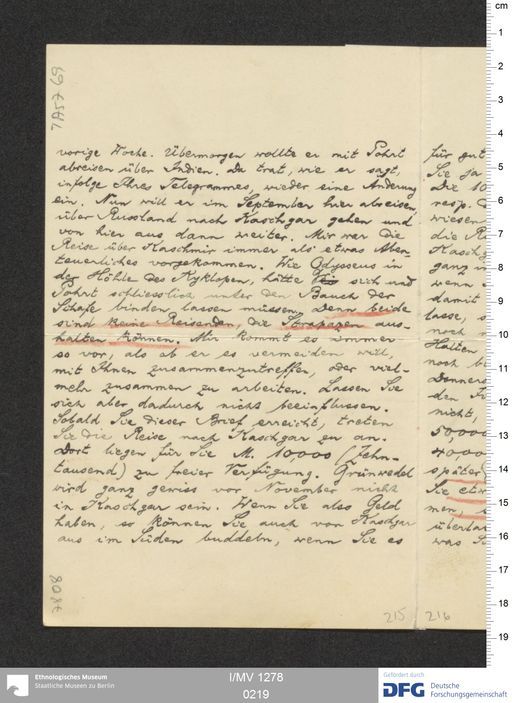 vorige Woche. Übermorgen wollte er mit Pohrt
abreisen über Indien. Da trat, wie er sagt,
infolge Ihres Telegrammes, wieder eine Änderung
ein. Nun will er im September hier abreisen,
über Russland nach Kaschgar gehen und
von hier aus dann weiter. Mir war die
Reise über Kaschmir immer als etwas Aben-
teuerliches vorgekommen. Wie Odysseus in
der Höhle des Kyklopen, hätte sich und
Pohrt schliesslich unter den Bauch der
Schafe binden lassen müssen, denn beide
sind keine Reisenden, die Strapazen aus-
halten können. Mir kommt es immer
so vor, als ob er es vermeiden will,
mit Ihnen zusammenzutreffen, oder viel-
mehr zusammen zu arbeiten. Lassen Sie
sich aber dadurch nicht beeinflussen.
Sobald Sie dieser Brief erreicht, treten
Sie die Reise nach Kaschgar zu an.
Dort liegen für Sie M. 10000 (Zehn-
tausend) zu freier Verfügung. Grünwedel
wird ganz gewiss vor November nicht
in Kaschgar sein. Wenn Sie also Geld
haben, so können Sie auch von Kaschgar
aus im Süden buddeln, wenn Sie es
für gut
Sie ja
Die 10
resp.
wiesen
die R
Kaschg
ganz
wenn
damit
lasse, s
noch
Halten
noch bi
Donners
den
nicht,
50,000
40000
später)
Sie etw
men,
überha
was
7A57 69
7808
215 216
cm
1
2
3
4
5
6
7
8
9
10
11
12
13
14
15
16
17
18
19
Ethnologisches Museum
Staatliche Museen zu Berlin
I/MV 1278
0219
Gefördert durch
DFG Deutsche
Forschungsgemeinschaft